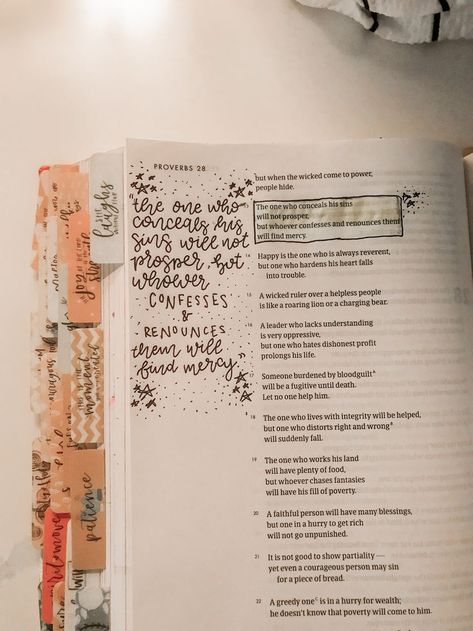 PROVERBS 28
"the one who
conceals his
sins will not
prosper, but
whoever
CONFESSES
&
RENOUNCES
them will
find mercy."
but when the wicked come to power,
people hide.
The one who conceals his sins
will not prosper,
but whoever confesses and renounces them
will find mercy.
14 Happy is the one who is always reverent,
but one who hardens his heart falls
into trouble.
15 A wicked ruler over a helpless people
is like a roaring lion or a charging bear.
16 A leader who lacks understanding
is very oppressive,
but one who hates dishonest profit
prolongs his life.
17 Someone burdened by bloodguilt
will be a fugitive until death.
Let no one help him.
18 The one who lives with integrity will be helped,
but one who distorts right and wrong
will suddenly fall.
19 The one who works his land
will have plenty of food,
but whoever chases fantasies
will have his fill of poverty.
20 A faithful person will have many blessings,
but one in a hurry to get rich
will not go unpunished.
21 It is not good to show partiality —
yet even a courageous person may sin
for a piece of bread.
22 A greedy one is in a hurry for wealth;
he doesn't know that poverty will come to him.
laughs
joy
moment
patience